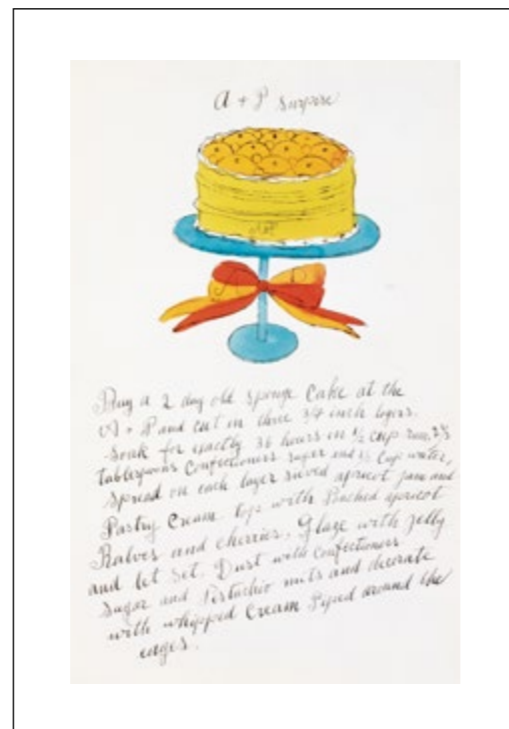 A + P Surprise
Buy a 2 day old sponge cake at the
A + P and cut in three 3/4 inch layers.
Soak for exactly 36 hours in 1/2 cup rum,
tablespoons confectioners sugar and cup water,
spread on each layer sieved apricot jam and
Pastry Cream. top with Poached apricot
Halves and cherries. Glaze with jelly
and let set. Dust with confectioners
sugar and Pistachio nuts and decorate
with whipped cream Piped around the
edges.